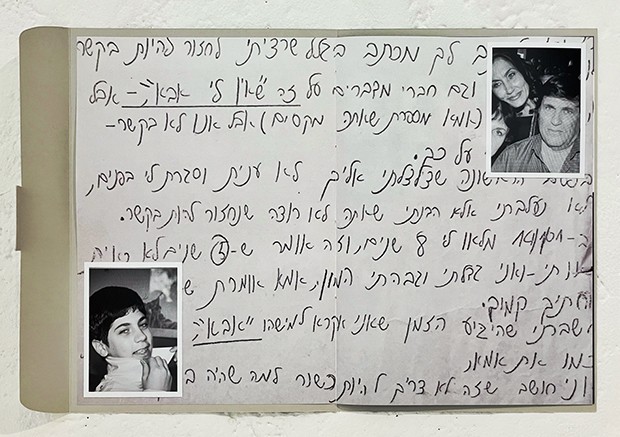 לך מכתב בגלל שרציתי לחזור להיות בקשר
וגם חברי מדברים על זה "שאין לי אבא"- אבל
(אמא מספרת שאתה מקסים) אבל אנו לא בקשר-
על כך.
הראשונה שצלצלתי אליך לא ענית וסגרת לי בפנים,
נעלבתי אלא הבנתי שאתה לא רוצה שנחזור להיות בקשר.
מלאו לי 8 שנים, וזה אומר ש-3 שנים לא ראית
אותי -ואני גדלתי וגבהתי המון. אמא אומרת
קמים.
שברתי שהגיע הזמן שאני אקרא למישהו "אבא",
כמו את אמא
אני חושב שזה לא צריך להיות קשור למה שהיה